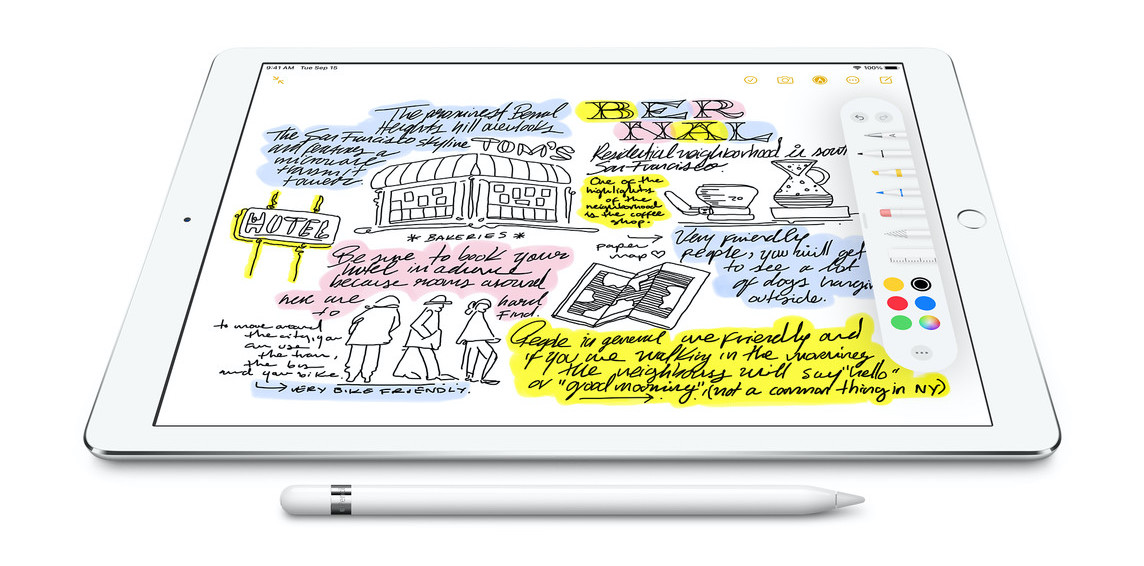 9:41 AM Tue Sep 15
100%
The prominent Bernal
Heights hill overlooks
The San Francisco skyline
and features a
microwave
transmit
tower.
TOM'S
BER
NAL
Residential neighborhood is sout
San Francisco.
One of the
highlights
of the
neighborhood
is the coffee
shop.
HOTEL
* BAKERIES *
Be sure to book your
hotel in advance
because rooms around
here are hard
to find.
paper
map
Very friendly
people, you will get
to see a lot
of dogs hangin
outside.
to move around
the city, you
can use
the tram,
the bus
and your bike.
VERY BIKE FRIENDLY.
People in general are friendly and
if you are walking in the morning
the neighbours will say "hello"
or "good morning". (not a common thing in NY)